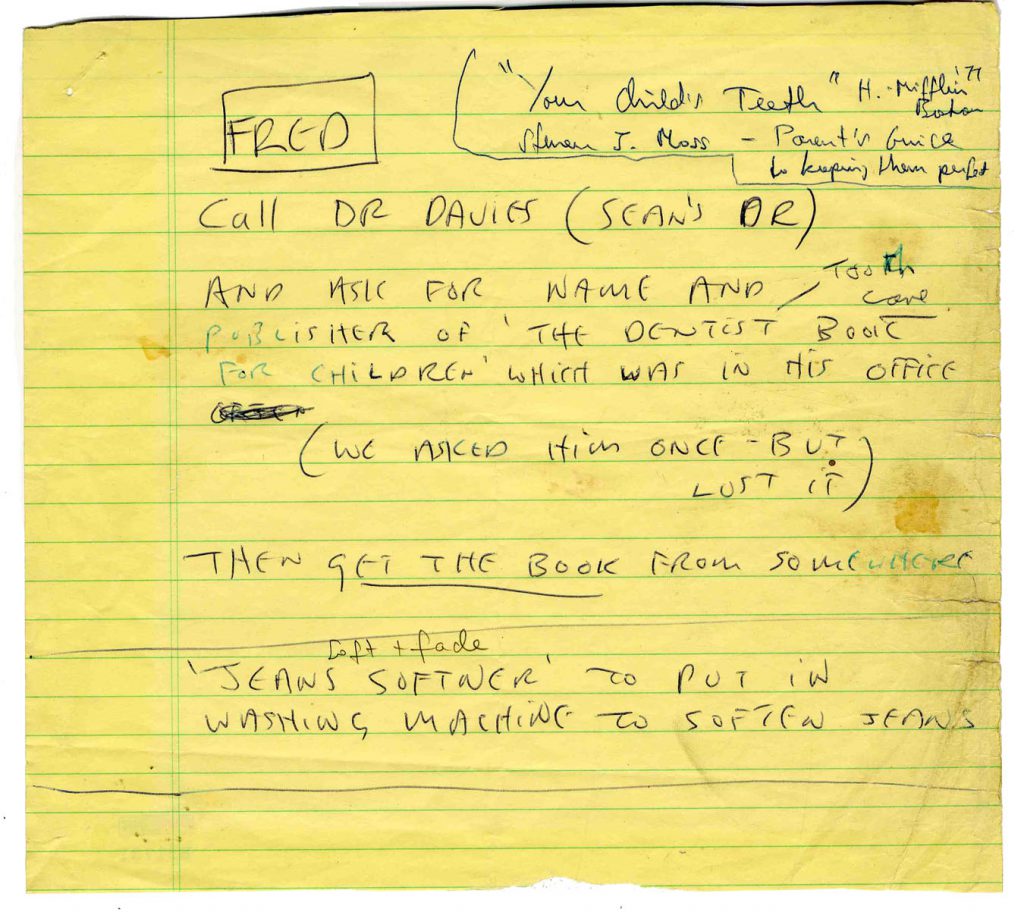 FRED
"Your child's Teeth" H. Mifflin '77
Boston
Steven J. Moss - Parent's Guide
to keeping them perfect
Call DR DAVIES (SEAN'S DR)
AND ASK FOR NAME AND / Tooth
care
PUBLISHER OF 'THE DENTIST BOOK
FOR CHILDREN' WHICH WAS IN HIS OFFICE
(WE ASKED HIM ONCE - BUT
LOST IT)
THEN GET THE BOOK FROM SOMEWHERE
Soft + fade
'JEANS SOFTNER' TO PUT IN
WASHING MACHINE TO SOFTEN JEANS